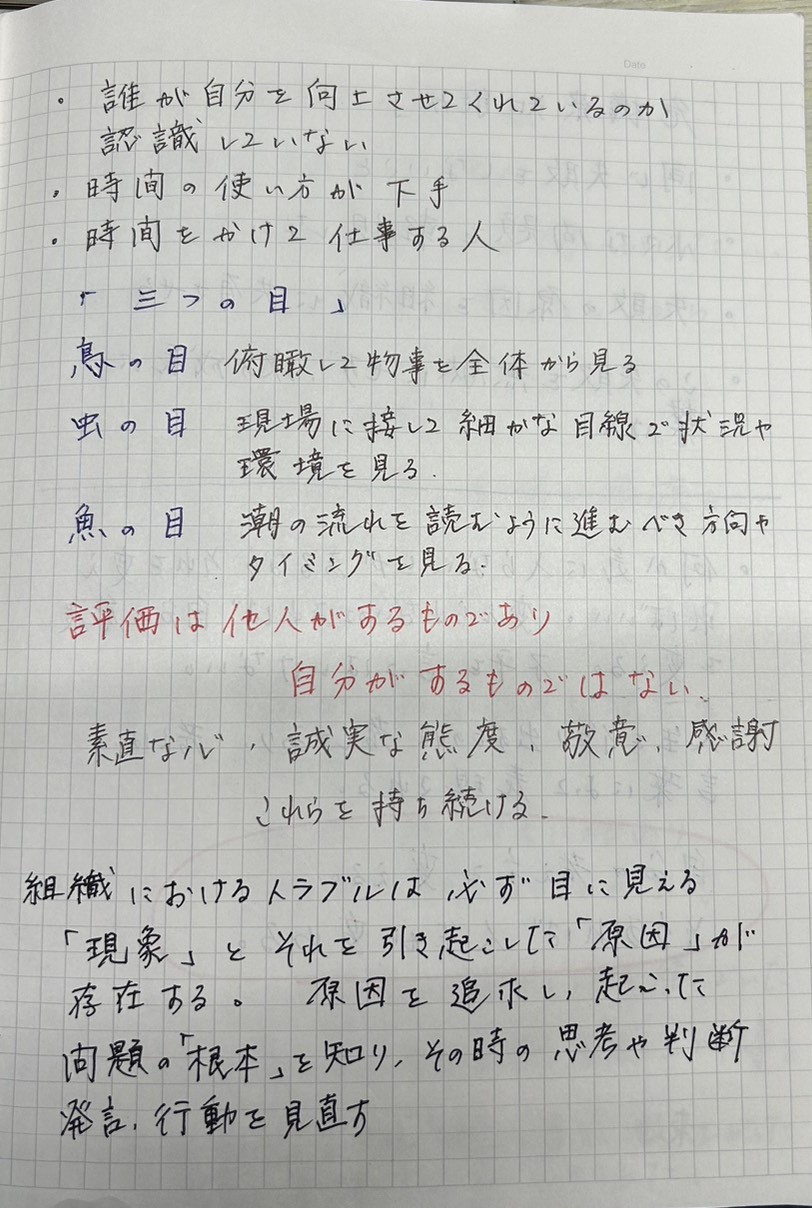 Date
・誰が自分を向上させてくれているのか
認識していない
・時間の使い方が下手
・時間をかけて仕事する人
「三つの目」
鳥の目 俯瞰して物事を全体から見る
虫の目 現場に接して細かな目線で状況や
環境を見る.
魚の目 潮の流れを読むように進むべき方向や
タイミングを見る.
評価は他人がするものであり
自分がするものではない.
素直な心、誠実な態度、敬意、感謝
これらを持ち続ける.
組織におけるトラブルは必ず目に見える
「現象」とそれを引き起こした「原因」が
存在する。 原因を追求し、起こった
問題の「根本」を知り、その時の思考や判断
発言、行動を見直す